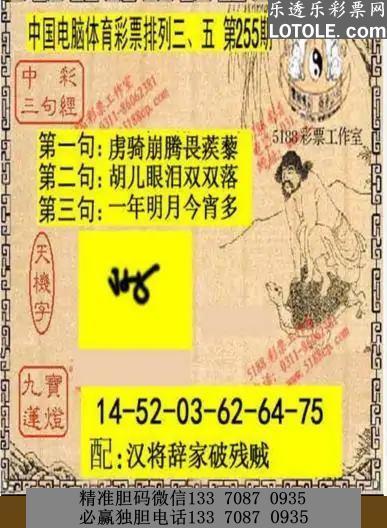 乐透乐彩票网
LOTOLE.COM
中国电脑体育彩票排列三、五 第255期
中彩
三句經
5188彩票工作室
第一句: 虏骑崩腾畏蒺藜
第二句: 胡儿眼泪双双落
第三句: 一年明月今宵多
天機字
九寶
蓮燈
14-52-03-62-64-75
配: 汉将辞家破残贼
精准胆码微信133 7087 0935
必赢独胆电话133 7087 0935